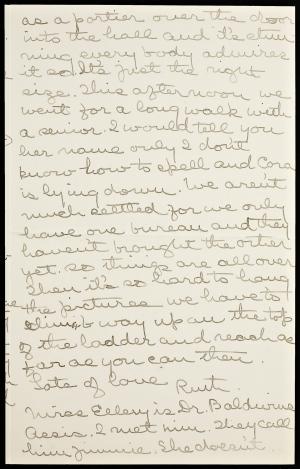 as a portier over the door
into the hall and it's stun
ning every body admires
it so. It's just the right
size. This afternoon we
went for a long walk with
a senior. I would tell you
her name only I don't
know how to spell and Cora
is lying down. We aren't
much settled for we only
have one bureau and they
haven't brought the other
yet. so things are all over
Then it's so hard to hang
the pictures we have to
climb way up on the top
of the ladder and reach as
far as you can then.
Lots of love Ruth.
Miss Emery is Dr. Baldwins
Assis. I met him. They call
him Jimmie. She doesn't